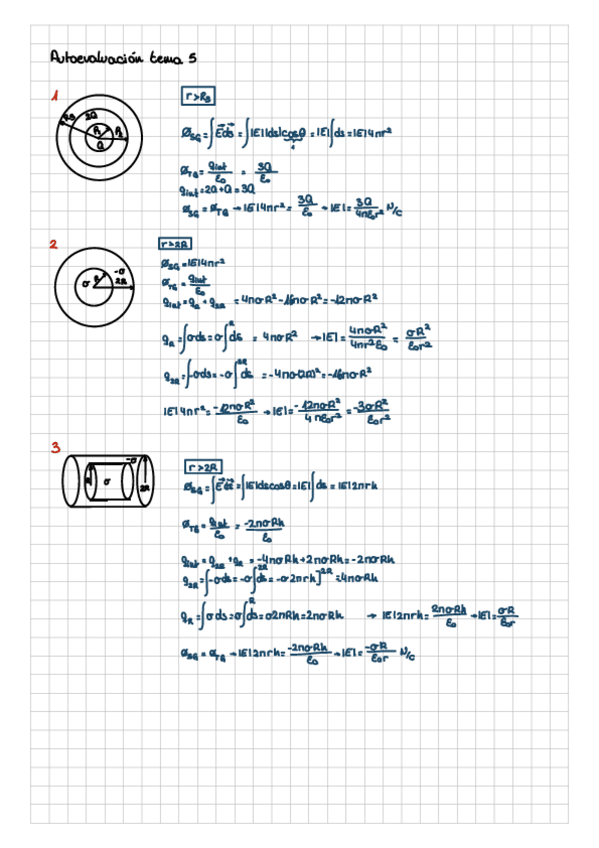 Autoevaluación tema 5
1
r>R3
R3 2Q R1 R2 Q
ØSG = ∫E⃗ds⃗ = ∫|E||ds|cosθ = |E|∫ds = |E|4πr²
1
ØTG = qint/ε0 = 3Q/ε0
qint = 2Q + Q = 3Q
ØSG = ØTG → |E|4πr² = 3Q/ε0 → |E| = 3Q/4πε0r² N/C
2
r>2R
σ R -σ 2R
ØSG = |E|4πr²
ØTG = qint/ε0
qint = qR + q2R = 4πσR² - 16πσR² = -12πσR²
qR = ∫σds = σ∫^R ds = 4πσR² → |E| = 4πσR²/4πr²ε0 = σR²/ε0r²
q2R = ∫-σds = -σ∫^2R ds = -4πσ(2R)² = -16πσR²
|E|4πr² = -12πσR²/ε0 → |E| = -12πσR²/4πε0r² = -3σR²/ε0r²
3
r>2R
R σ -σ 2R
ØSG = ∫E⃗ds⃗ = ∫|E|dscosθ = |E|∫ds = |E|2πrh
ØTG = qint/ε0 = -2πσRh/ε0
qint = q2R + qR = -4πσRh + 2πσRh = -2πσRh
q2R = ∫-σds = -σ∫^2R ds = -σ2πrh]^2R = -4πσRh
qR = ∫σds = σ∫^R ds = σ2πRh = 2πσRh → |E|2πrh = 2πσRh/ε0 → |E| = σR/ε0r
ØSG = ØTG → |E|2πrh = -2πσRh/ε0 → |E| = -σR/ε0r N/C